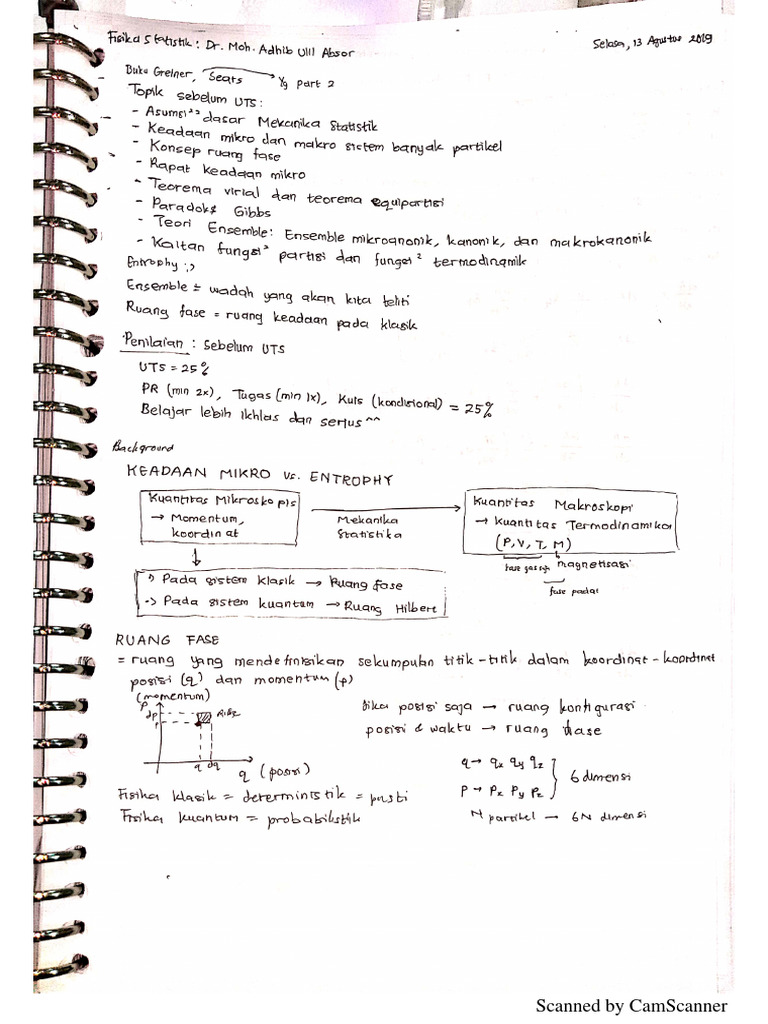 Fisika Statistik : Dr. Moh. Adhib Ulil Absor
Selasa, 13 Agustus 2019
Buku Greiner, Sears → yg part 2
Topik sebelum UTS :
- Asumsi²² dasar Mekanika Statistik
- Keadaan mikro dan makro sistem banyak partikel
- Konsep ruang fase
- Rapat keadaan mikro
- Teorema virial dan teorema equipartisi
- Paradoks Gibbs
- Teori Ensemble : Ensemble mikroanonik, kanonik, dan makrokanonik
- Kaitan fungsi² partisi dan fungsi² termodinamik
Entrophy
Ensemble = wadah yang akan kita teliti
Ruang fase = ruang keadaan pada klasik
Penilaian : Sebelum UTS
UTS = 25%
PR (min 2x), Tugas (min 1x), Kuis (kondisional) = 25%
Belajar lebih ikhlas dan serius ^^
Background
KEADAAN MIKRO vs. ENTROPHY
Kuantitas Mikroskopis
→ Momentum,
koordinat
Mekanika
Statistika
Kuantitas Makroskopi
→ Kuantitas Termodinamika
(P, V, T, M)
fase gas
magnetisasi
fase padat
Pada sistem klasik → Ruang fase
Pada sistem kuantum → Ruang Hilbert
RUANG FASE
= ruang yang mendefinisikan sekumpulan titik-titik dalam koordinat-koordinat
posisi (q) dan momentum (p)
(momentum)
P
dp
q dq
q (posisi)
Jika posisi saja → ruang konfigurasi
posisi & waktu → ruang
q → qx qy qz
p → px py pz
6 dimensi
N partikel → 6N dimensi
Fisika klasik = deterministik = pasti
Fisika kuantum = probabilistik
Scanned by CamScanner